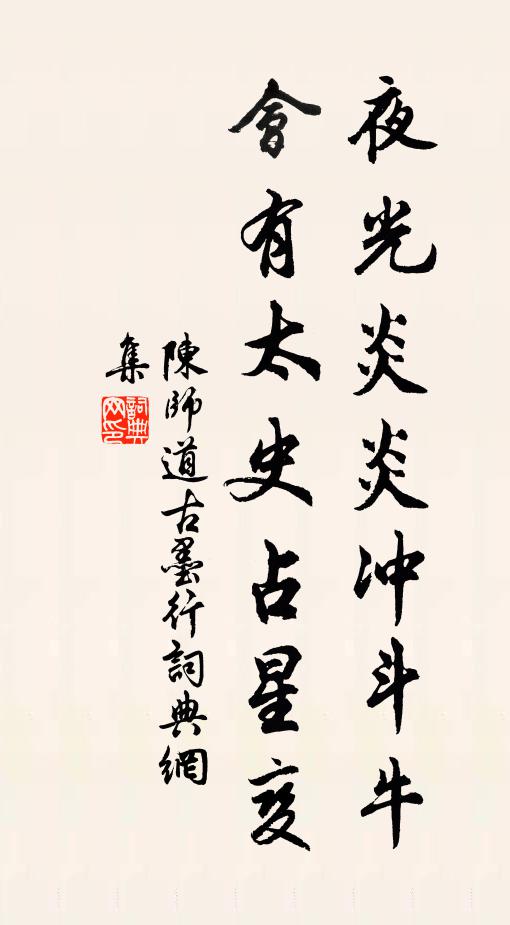 夜光炎炎冲斗牛
會有太史占星变
陳師道古墨行詞典網
集
詞典网印